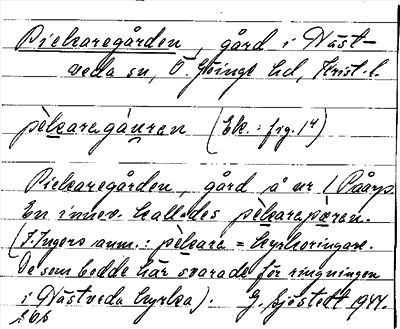 Pickaregården, gård i Näst-
veda sn, Ö. Göinge hd, Krist. l.
pèkaragáuran (Ek.: fig. 14)
Pickaregården, gård å nr 1 Påarp.
En innev. kallades pèkarapæran.
(I. Ingers anm.: pèkara = kyrkoringare.
De som bodde här svarade för ringningen
i Nästveda kyrka). G. Sjöstedt 1944.